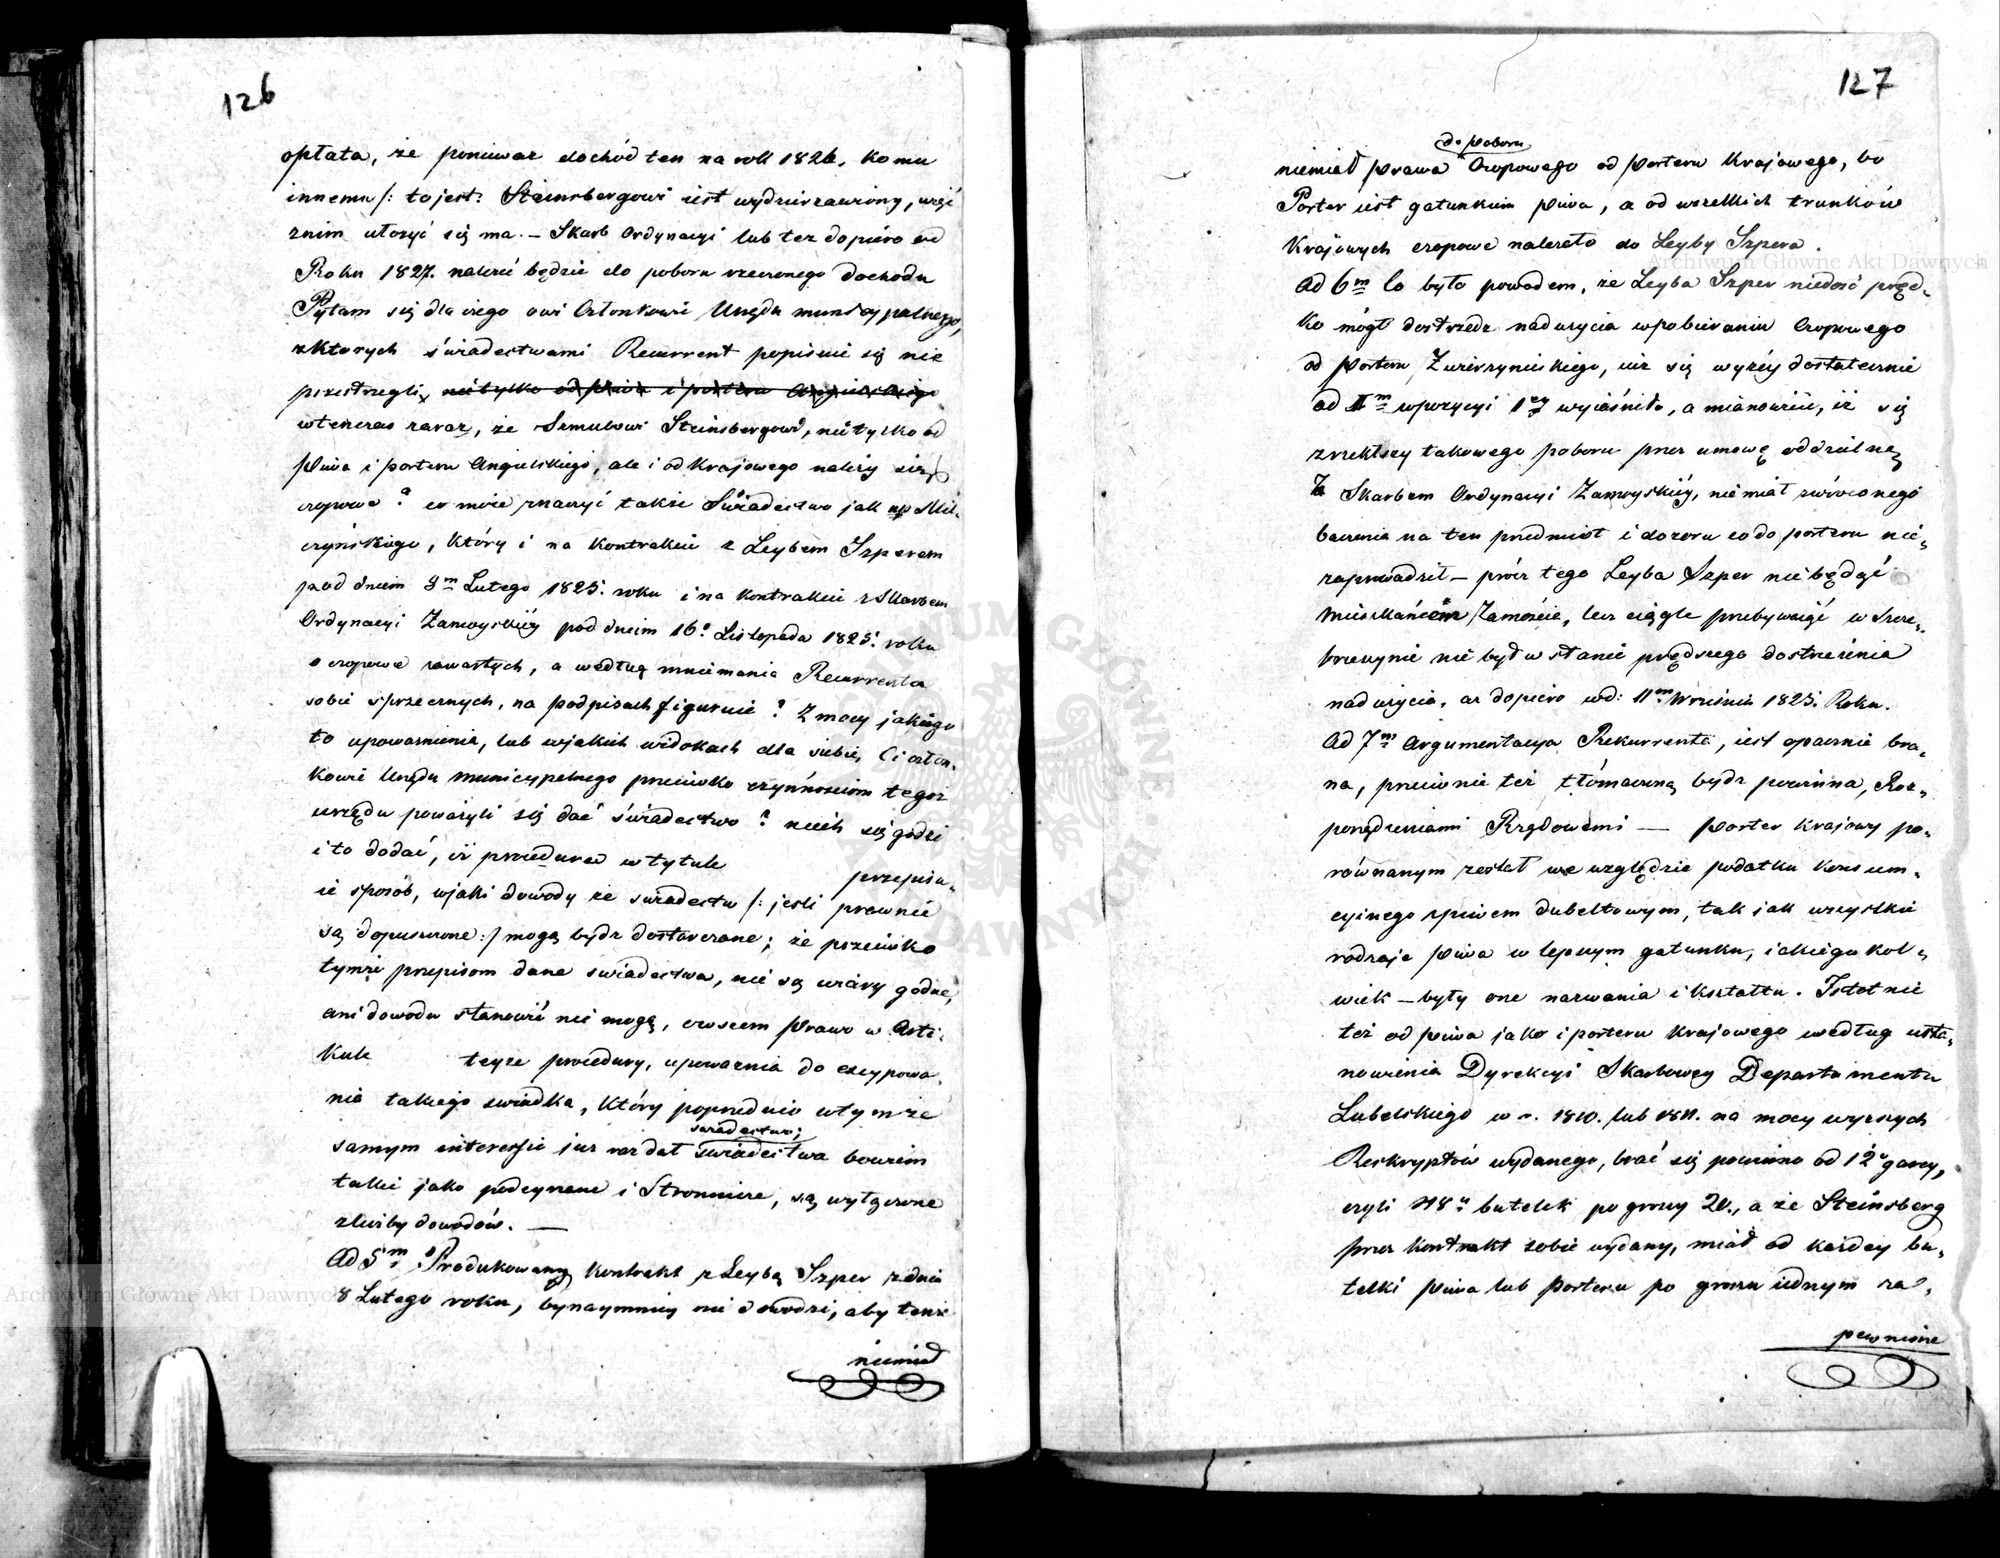 126
opłata, że ponieważ dochód ten na rok 1826. komu
innemu /: to jest: Steinsbergowi iest wydzierżawiony, więc
znim ułożyć się ma. – Skarb Ordynacyi lub też dopiero od
Roku 1827. należeć będzie do poboru rzeczonego dochodu
Pytam się dla czego owi Członkowie Urzędu municypalnego,
zktorych świadectwami Recurrent popisuie się nie
przestrzegli, nietylko od piwa i porteru Angielskiego
wtenczas zaraz, że Szmulowi Steinsbergowi, nietylko od
piwa i porteru Angielskiego, ale i od krajowego należy się
czopowe? co może znaczyć takie Świadectwo jak np Mil-
czyńskiego, który i na kontrakcie z Leybem Szperem
pod dniem 8m Lutego 1825. roku i na kontrakcie z Skarbem
Ordynacyi Zamoyskiéy pod dniem 16o Listopada 1825. roku
o czopowe zawartych, a według mniemania Recurrenta
sobie sprzecznych, na podpisach figuruie? Z mocy jakiego
to upoważnienia, lub wjakich widokach dla siebie, Ci człon-
kowie Urzędu Municypalnego przeciwko czynnościom tegoż
urzędu poważyli się dać świadectwo? niech się godzi
i to dodać, iż procedura w tytule przepisu-
ie sposób, wjaki dowody ze świadectw /: jeśli prawnie
są dopuszczone :/ mogą bydź dostarczane; że przeciwko
tymże przepisom dane świadectwa, nie są wiary godne,
ani dowodu stanowić nie mogą, owszem Prawo w Arti-
kule teyże procedury, upoważnia do excypowa-
nia takiego swiadka, który poprzednio wtymże
samym interessie już raz dał świadectwa bowiem
świadectwo;
takie jako podeyrzane i Stronnicze, są wyłączone
zliczby dowodów. —
Ad 5m Produkowany kontrakt z Leybą Szper zdnia
8 Lutego roku, bynaymniéy nie dowodzi, aby tenże
niemiał
127
do poboru
niemiał prawa Czopowego od porteru krajowego, bo
Porter iest gatunkiem piwa, a od wszelkich trunków
krajowych czopowe należało do Leyby Szpera.
Ad 6m Co było powodem, że Leyba Szper niedość pręd-
ko mógł dostrzedz nadużycia wpobieraniu Czopowego
od Porteru Zwierzynieckiego, iuż się wyżéy dostatecznie
ad IIm wpozycyi 1ey wyiaśniło, a mianowicie, iż się
zrzekłszy takowego poboru przez umowę oddzielną
Z Skarbem Ordynacyi Zamoyskiéy, nie miał zwróconego
baczenia na ten przedmiot i dozoru co do porteru nie-
zaprowadził – prócz tego Leyba Szper nie będąc
Mieszkańcem Zamościa, lecz ciągle przebywaiąc w Szcze-
brzeszynie nie był w stanie prędszego dostrzeżenia
nadużycia, aż dopiero w d: 11m Września 1825. Roku.
Ad 7m Argumentacya Rekurrenta, iest opacznie bra-
na, przeciwnie też tłómaczoną bydź powinna, Roz-
porządzeniami Rządowemi — Porter krajowy po-
równanym został we względzie podatku konsum-
cyinego zpiwem dubeltowym, tak jak wszystkie
rodzaje piwa w lepszym gatunku, iakiegokol-
wiek – były one nazwania i kształtu. Istotnie
też od piwa jako i porteru krajowego według usta-
nowienia Dyrekcyi Skarbowey Departamentu
Lubelskiego w r. 1810. lub 1811. na mocy wyższych
Reskryptów wydanego, brać się powinno od 12u garcy,
czyli 48u butelek po groszy 20., a że Steinsberg
przez kontrakt sobie wydany, miał od każdey bu-
telki piwa lub Porteru po groszu iednym za-
pewnione
Archiwum Główne Akt Dawnych
Archiwum Główne Akt Dawnych
ARCHIWUM GŁÓWNE AKT DAWNYCH